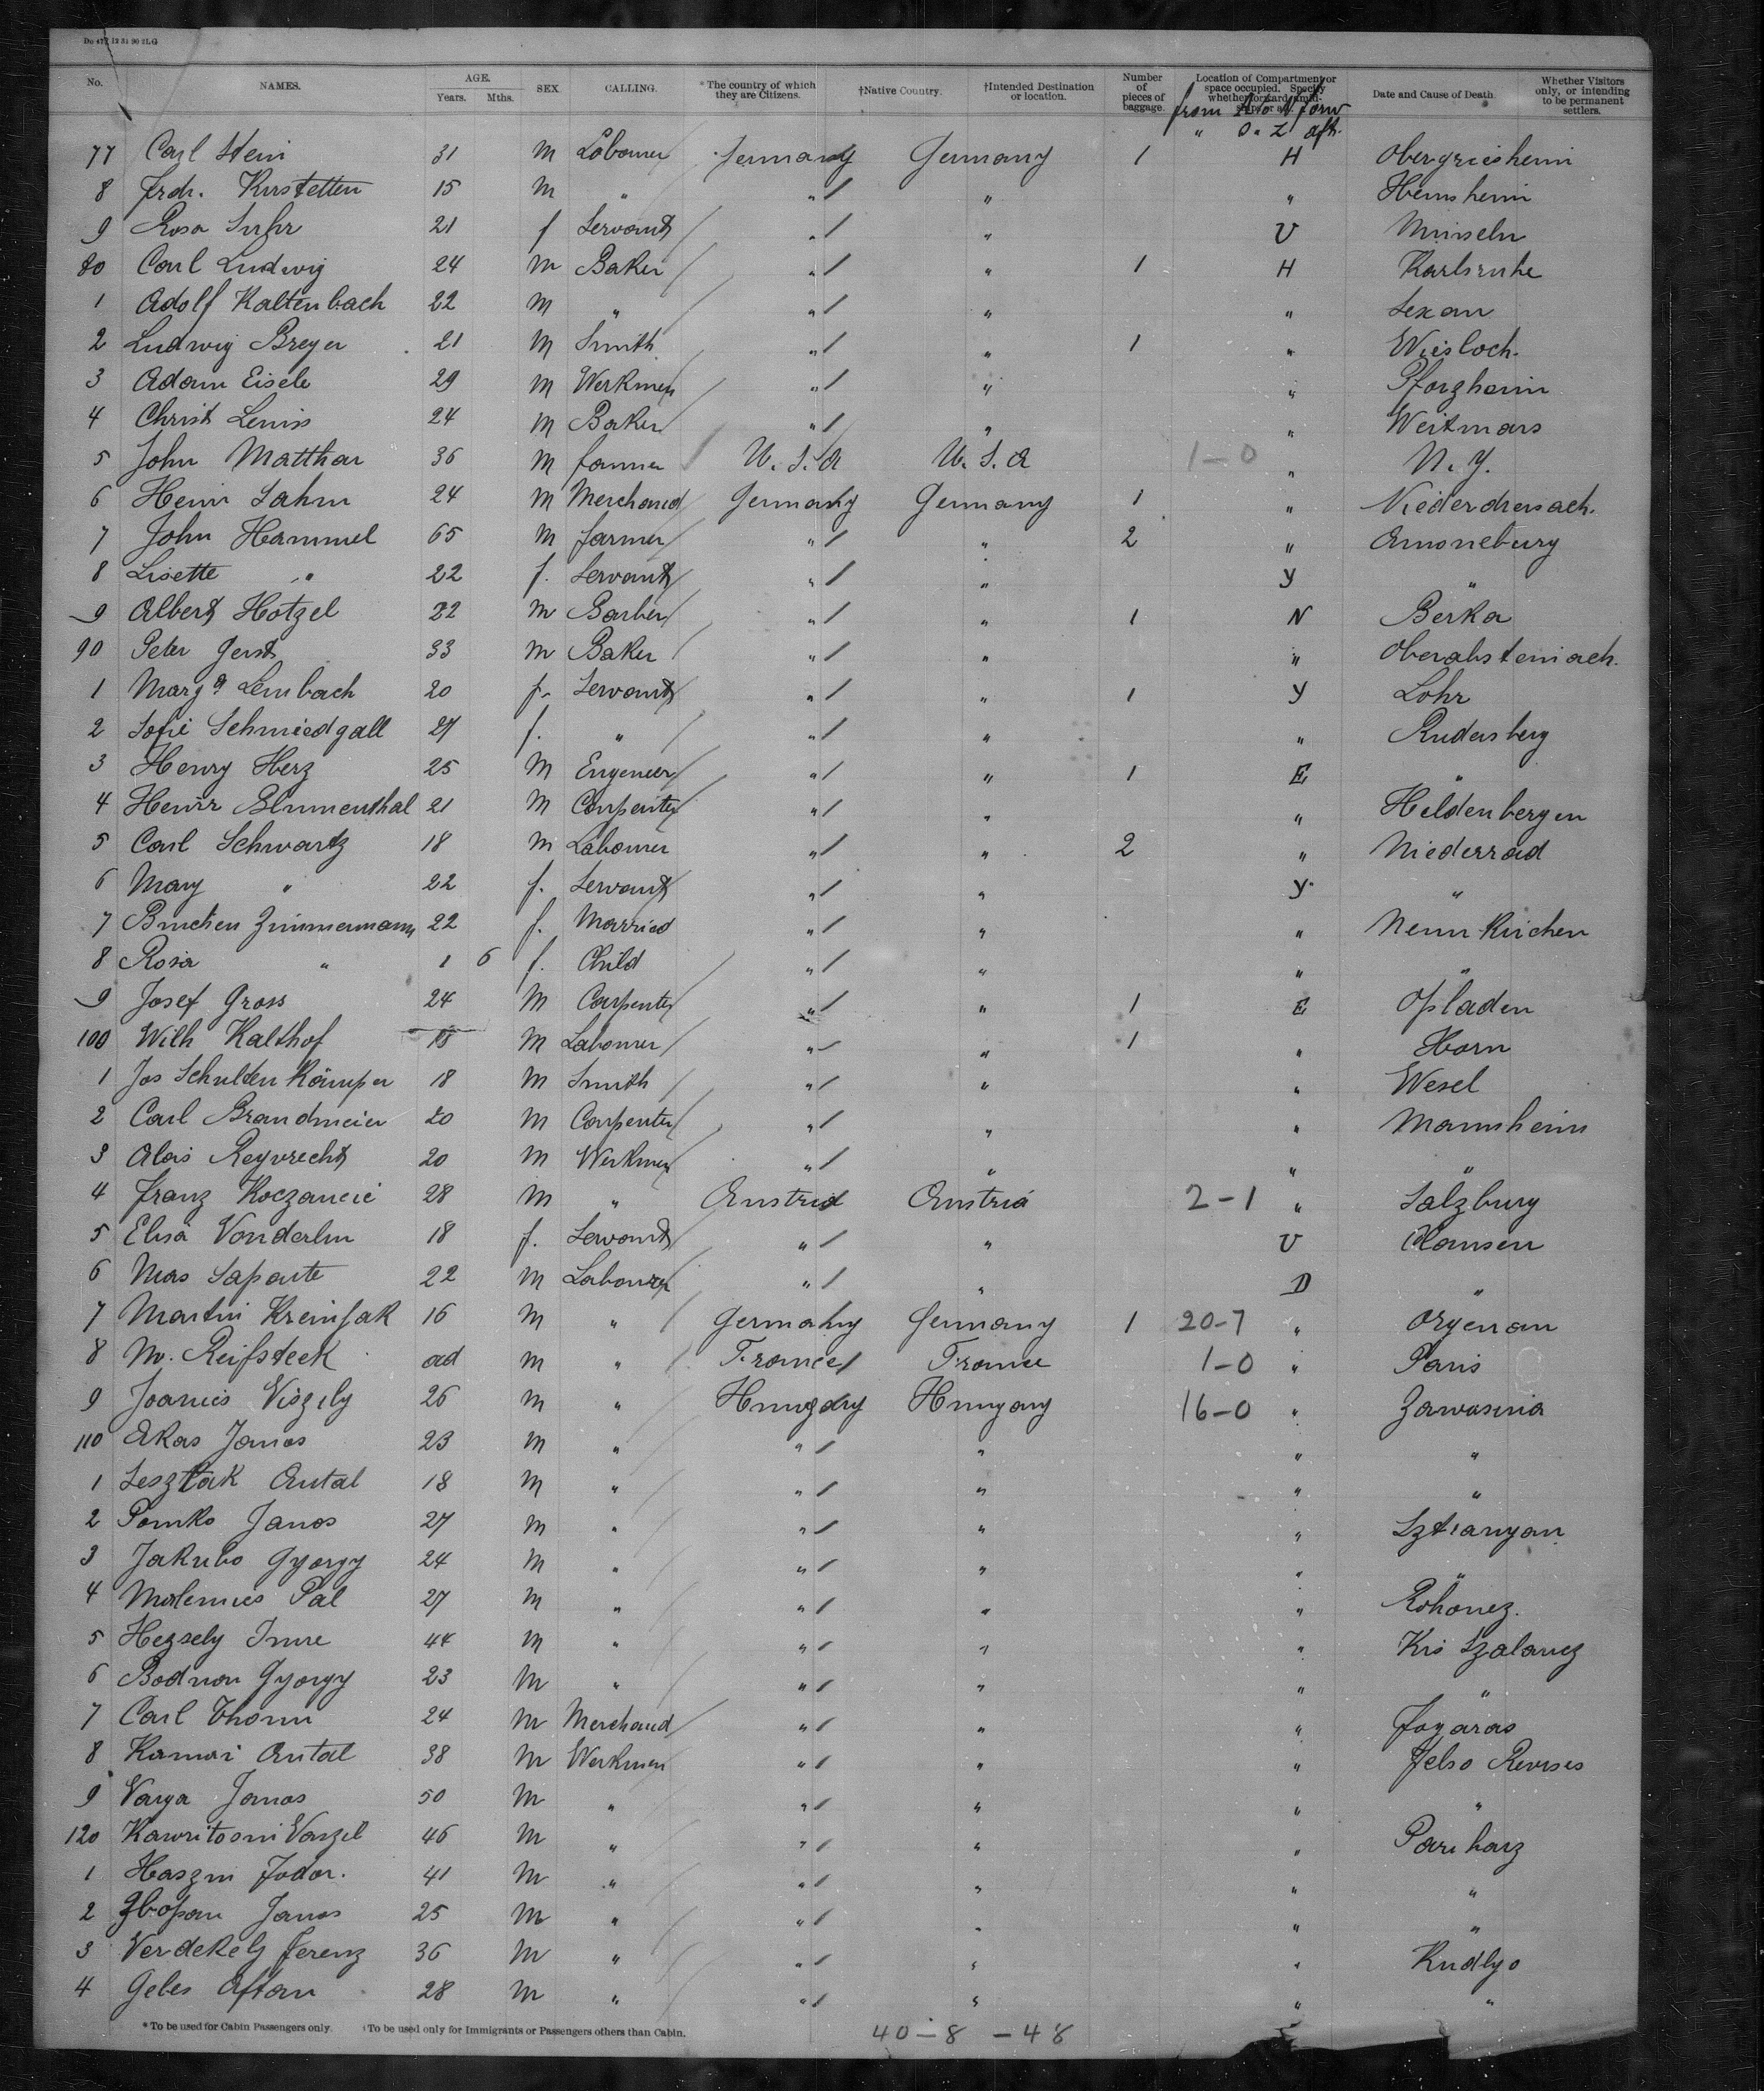 Do 477 12 31 90 2LG
No. NAMES. AGE. Years. Mths. SEX CALLING. *The country of which they are Citizens. †Native Country. †Intended Destination or location. Number of pieces of baggage. Location of Compartment or space occupied. Specify whether forward, amidships or aft. Date and Cause of Death. Whether Visitors only, or intending to be permanent settlers.
from A to N forw
" O " Z aft.
77 Carl Stein 31 M Labourer Germany Germany 1 H Obergriesheim
8 Frdr. Kustetten 15 M " " " " Heimsheim
9 Rosa Suhr 21 f Servant " " U Minseln
80 Carl Ludwig 24 M Baker " " 1 H Karlsruhe
1 Adolf Kaltenbach 22 M " " " " Sexau
2 Ludwig Breyer 21 M Smith " " 1 " Wiesloch.
3 Adam Eisele 29 M Werkmen " " " Pforzheim
4 Christ Lenis 24 M Baker " " " Weitmars
5 John Matthar 36 M farmer U. S. A U. S. A 1-0 " N. Y.
6 Heinr Sahm 24 M Merchand Germany Germany 1 "
7 John Hammel 65 M farmer " " 2 " Amoneburg
8 Lisette " 22 f. Servant " " Y "
9 Albert Hotzel 22 M Barber " " 1 N Berka
90 Peter Gerst 33 M Baker " " " Oberabsteinach.
1 Marga Lembach 20 f. Servant " " 1 Y Lohr
2 Sofie Schmiedgall 27 f. " " " " Rudersberg
3 Henry Herz 25 M Engeneer " " 1 E "
4 Heinr Blumenthal 21 M Carpenter " " " Heldenbergen
5 Carl Schwartz 18 M Labourer " " 2 " Niederrad
6 Mary " 22 f. Servant " " Y "
7 Binchen Zimmermann 22 f. Married " " " Neunkirchen
8 Rosa " 1 6 f. Child " " " "
9 Josef Gross 24 M Carpenter " " 1 E Opladen
100 Wilh Kalthof 18 M Labourer " " 1 " Horn
1 Jos Schulden Kämper 18 M Smith " " " Wesel
2 Carl Brandmeier 20 M Carpenter " " " Mannheim
3 Alois Reyvrecht 20 M Werkmen " " " "
4 Franz Koczancic 28 M " Austria Austria 2-1 " Salzburg
5 Elisa Vonderlin 18 f. Servant " " U Clausen
6 Mas Saparte 22 M Labourer " " D "
7 Martin Kreinsak 16 M " Germany Germany 1 20-7 "
8 M. Reifsteck ad M " France France 1-0 " Paris
9 Joanies Viszely 26 M " Hungary Hungary 16-0 " Zawasina
110 Ekas Janos 23 M " " " " "
1 Lesztak Antal 18 M " " " " "
2 Pomko Janos 27 M " " " " Sztianyan
3 Jakubo Gyorgy 24 M " " " " "
4 Malenies Pal 27 M " " " " Rohonez.
5 Hezsely Imre 44 M " " " " Kis Szalancz
6 Bodnar Gyorgy 23 M " " " " "
7 Carl Thorn 24 M Merchand " " " Fogaras
8 Kamai Antal 38 M Werkmen " " " Felso Revises
9 Varga Janos 50 M " " " " "
120 Kawritosni Vaszel 46 M " " " " Pariharz
1 Haszni Fodor. 41 M " " " " "
2 Janos 25 M " " " " "
3 Verdekely Ferenz 36 M " " " " Kudlyo
4 Geles Aftan 28 M " " " " "
*To be used for Cabin Passengers only. †To be used only for Immigrants or Passengers others than Cabin.
40-8 -48